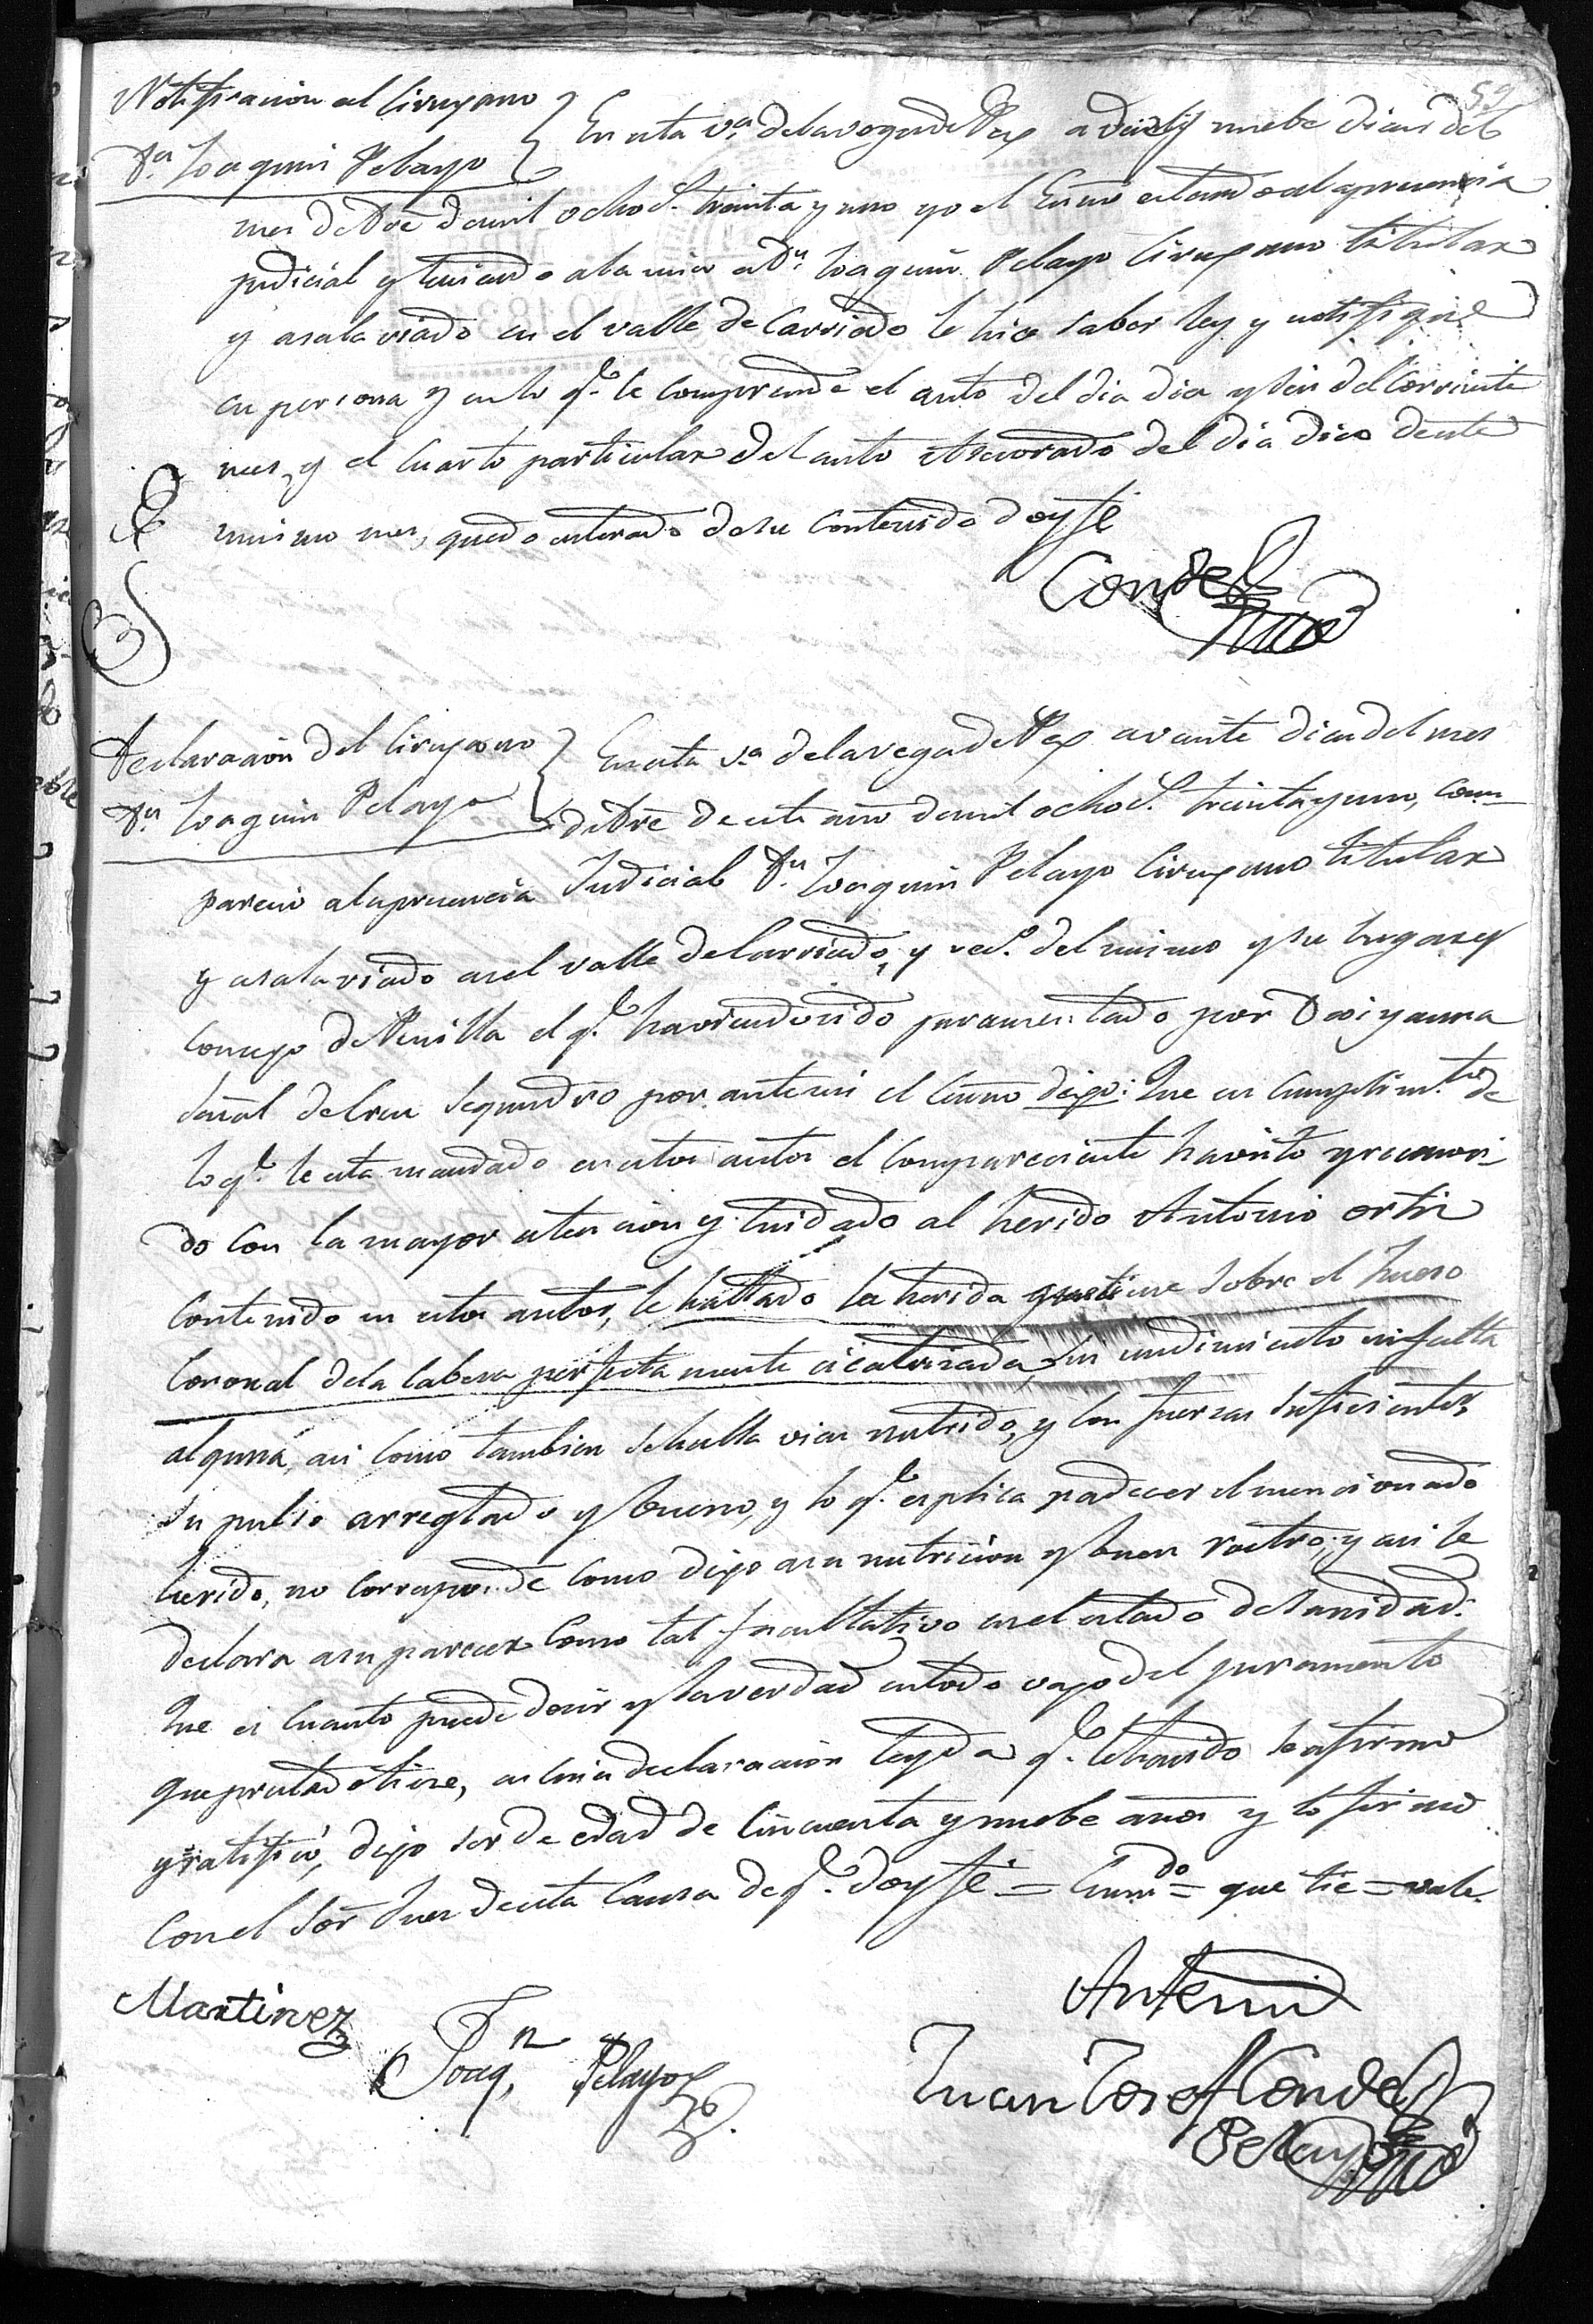 59
Notificacion al Cirujano
Dn. Joaquin Pelayo
En esta va. de la vega de Pas a diez y nuebe dias del
mes de Dre de mil ochos. treinta y uno yo el Esno estando a la presencia
judicial y teniendo a la mia a Dn. Joaquin Pelayo Cirujano titular
y asalariado en el valle de Carriedo le hice saber ley y notifiqué
en persona y en lo qe. le comprende el auto del dia diez y seis del Corriente
mes, y el Cuarto particular del auto Asesorado del dia dies de este
mismo mes, quedo enterado de su Contenido doy fé
Conde
Declaracion del Cirujano
Dn. Joaquin Pelayo
En esta va. de la vega de Pas a veinte dias del mes
de Dre de este año de mil ochos. treinta y uno, com-
parecio a la presencia Judicial Dn. Joaquin Pelayo Cirujano titular
y asalariado en el valle de Carriedo, y veco. del mismo y su lugar y
Concejo de Penilla el qe. haviendo sido juramentado por Dios y a una
señal de cruz segun dro por ante mi el Esno dijo: Que en Cumplimto. de
lo qe. le esta mandado en estos autos el Compareciente ha visto y reconoci-
do Con la mayor atencion y Cuidado al herido Antonio ortiz
Contenido en estos autos, le hallado la herida que tiene sobre el hueso
Coronal de la Cabeza perfectamente cicatrizada, sin undimiento ni falta
alguna, asi Como tambien se halla vien nutrido, y Con fuerzas suficientes,
su pulso arreglado y bueno, y lo qe. esplica padecer el mencionado
herido, no Corresponde Como dijo a su nutricion y buen rostro; y asi le
declara a su parecer Como tal facultativo en el estado de sanidad.
Que es Cuanto puede decir y la verdad en todo vajo del juramento
que prestado tiene, en esta declaracion leyda qe. le ha sido se afirmó
y ratificó, dijo ser de edad de Cincuenta y nuebe años y lo firmó
Con el Sor Juez de esta Causa de qe. doy fé = Enmdo = que tie = vale.
Martinez
Joaqn. Pelayo
Ante mi
Juan Josef Conde
Pelayo